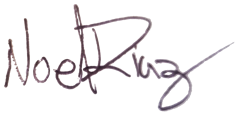 Noel Ruz